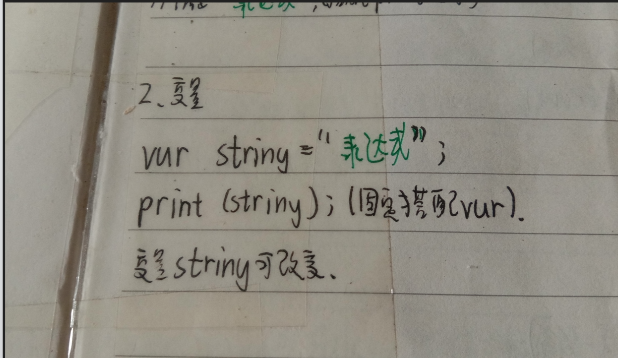 2、变量
var string = "表达式";
print (string); (固定搭配var).
变量string可改变.